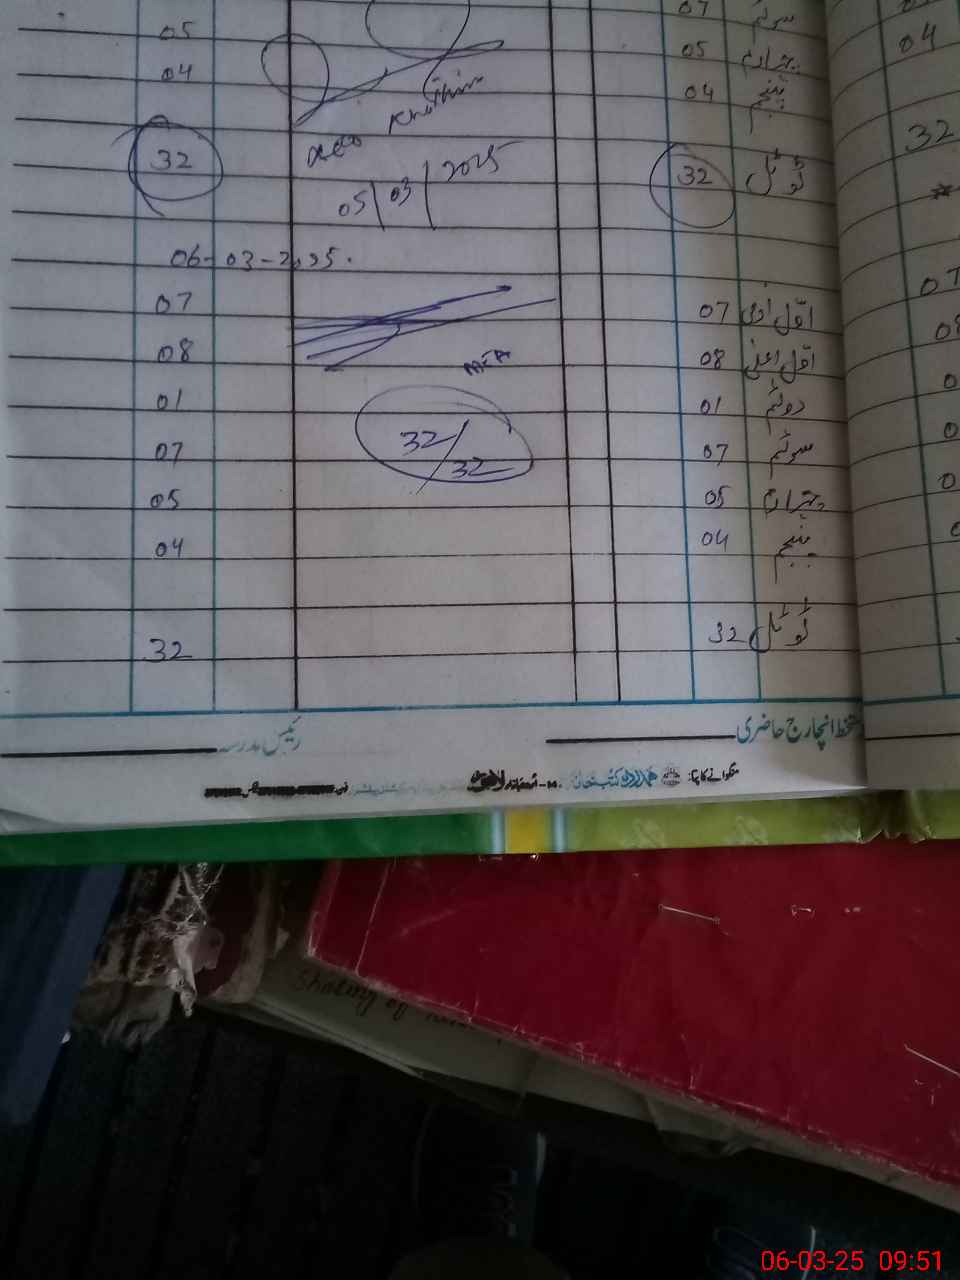 سوئم 07 05
چہارم 05 04
پنجم 04
ٹوٹل 32 32
Khathim
05/03/2025
06-03-2025.
اول ادنیٰ 07 07
اول اعلیٰ 08 08
MEA
دوئم 01 01
سوئم 07 32/32 07
چہارم 05 05
پنجم 04 04
ٹوٹل 32 32
دستخط انچارج حاضری رئیس مدرسہ
منگوانے کا پتہ: ہمدرد کتب خانہ لاہور
04
32
07
Sharing of
06-03-25 09:51